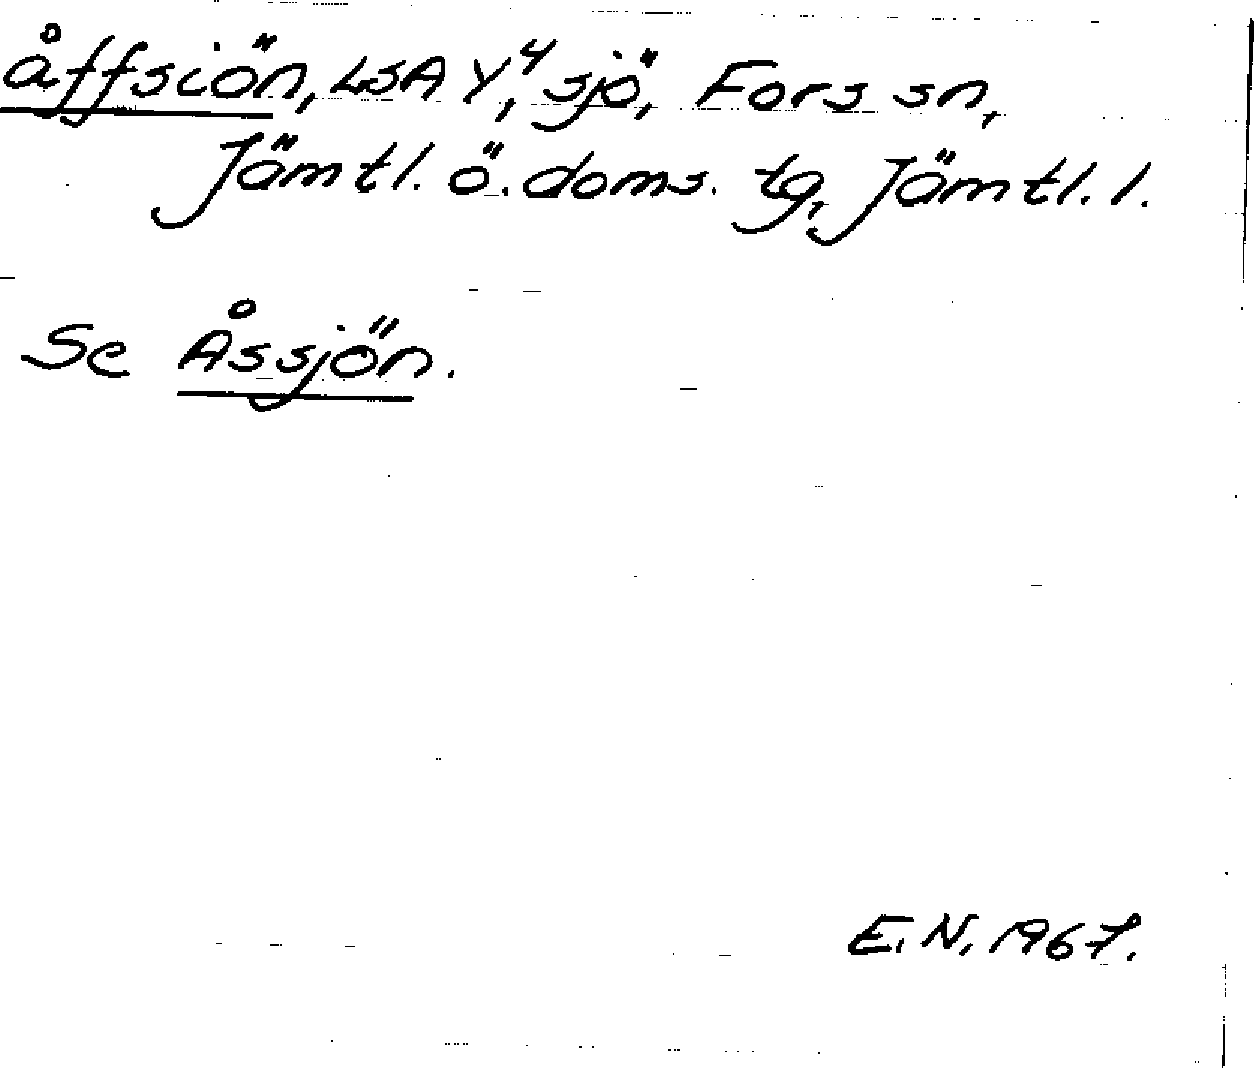 åffsiön, LSA Y,⁴ sjö, Fors sn,
Jämtl. ö. doms. tg, Jämtl. l.
Se Åssjön.
E.N. 1967.